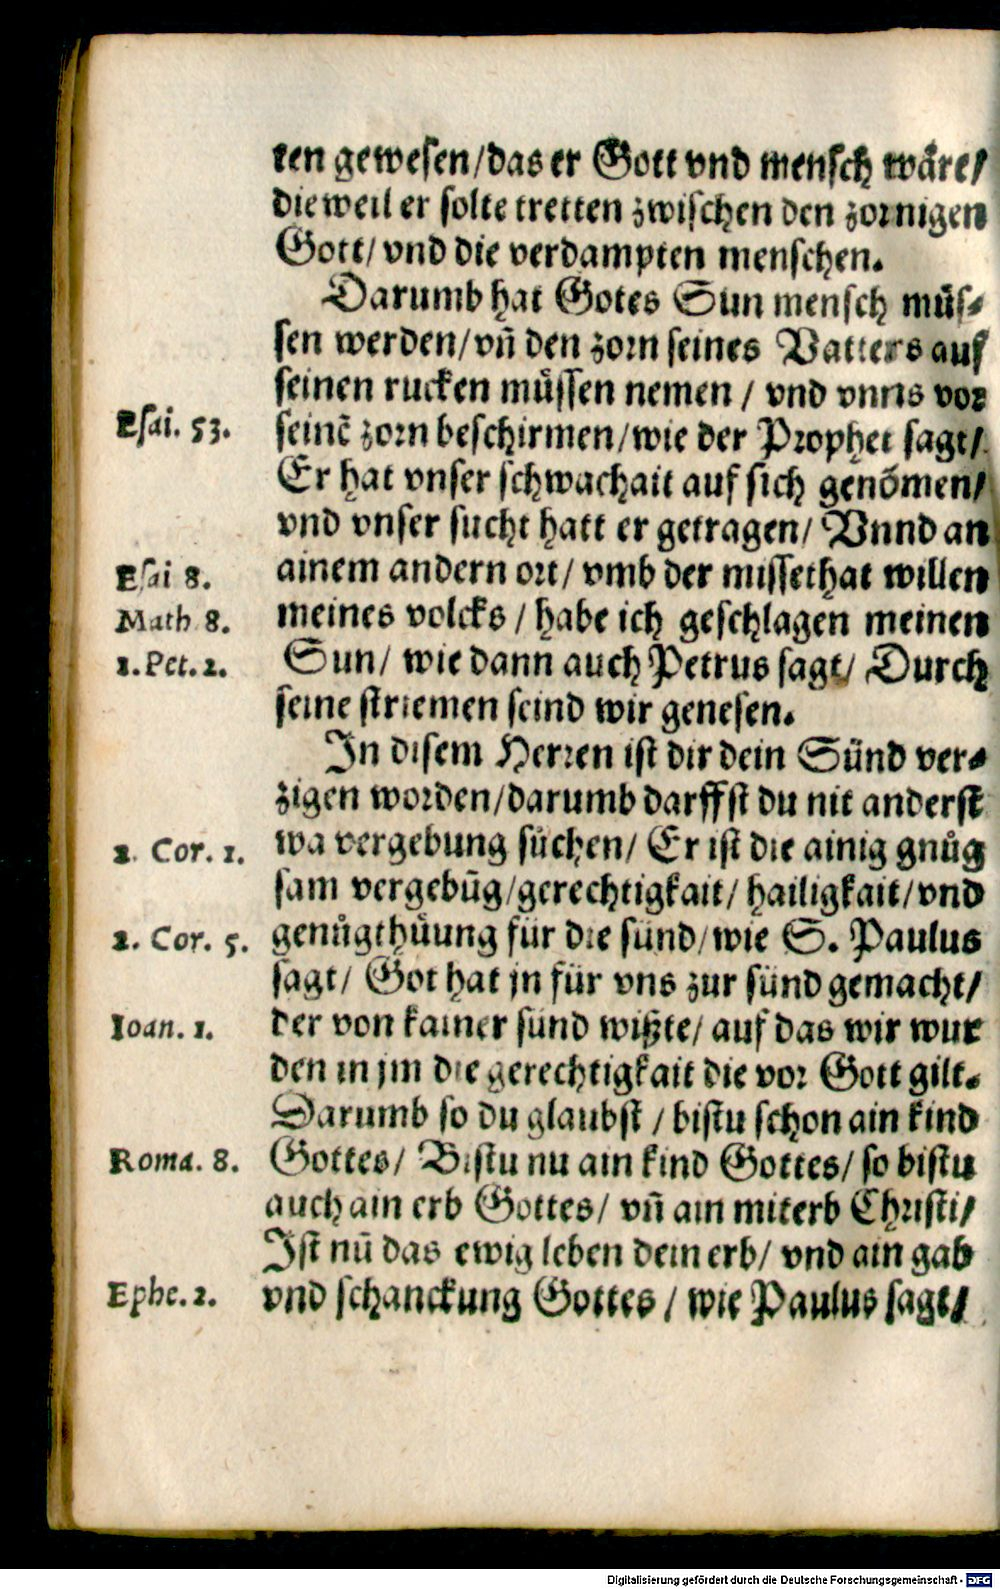 ten gewesen/das er Gott vnd mensch wåre/
dieweil er solte tretten zwischen den zornigen
Gott/ vnd die verdampten menschen.
Darumb hat Gotes Sun mensch můs⸗
sen werden/vn̄ den zorn seines Vatters auf
seinen rucken můssen nemen / vnd vnns vor
Esai. 53. seinē zorn beschirmen/wie der Prophet sagt/
Er hat vnser schwachait auf sich genōmen/
vnd vnser sucht hatt er getragen/ Vnnd an
Esai 8. ainem andern ort/ vmb der missethat willen
Math 8. meines volcks / habe ich geschlagen meinen
1. Pet. 2. Sun/ wie dann auch Petrus sagt/ Durch
seine striemen seind wir genesen.
In disem Herren ist dir dein Sünd ver⸗
zigen worden/darumb darffst du nit anderst
1. Cor. 1. wa vergebung sůchen/ Er ist die ainig gnůg
sam vergebūg/gerechtigkait/ hailigkait/vnd
2. Cor. 5. genůgthůung für die sünd/wie S. Paulus
sagt/ Got hat jn für vns zur sünd gemacht/
Ioan. 1. der von kainer sünd wißte/ auf das wir wur
den in jm die gerechtigkait die vor Gott gilt.
Darumb so du glaubst / bistu schon ain kind
Roma. 8. Gottes/ Bistu nu ain kind Gottes/ so bistu
auch ain erb Gottes/ vn̄ ain miterb Christi/
Ist nū das ewig leben dein erb/ vnd ain gab
Ephe. 2. vnd schanckung Gottes / wie Paulus sagt/
Digitalisierung gefördert durch die Deutsche Forschungsgemeinschaft - DFG